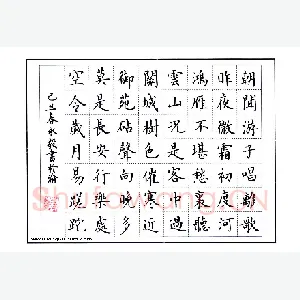 朝聞游子唱離歌
昨夜微霜初度河
鴻雁不堪愁裏聽
雲山況是客中過
關城樹色催寒近
御苑砧聲向晚多
莫是長安行樂處
空令歲月易蹉跎
己丑春永